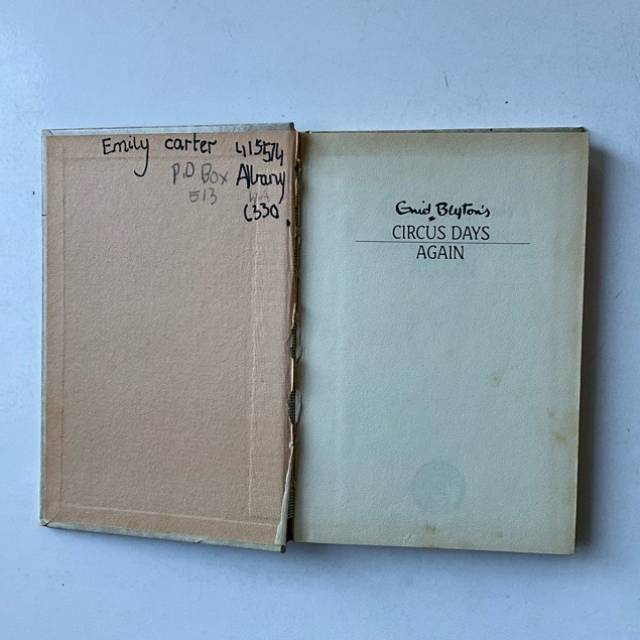 Emily carter 415574
P.O Box Albany
513 WA
6330
Enid Blyton's
CIRCUS DAYS
AGAIN